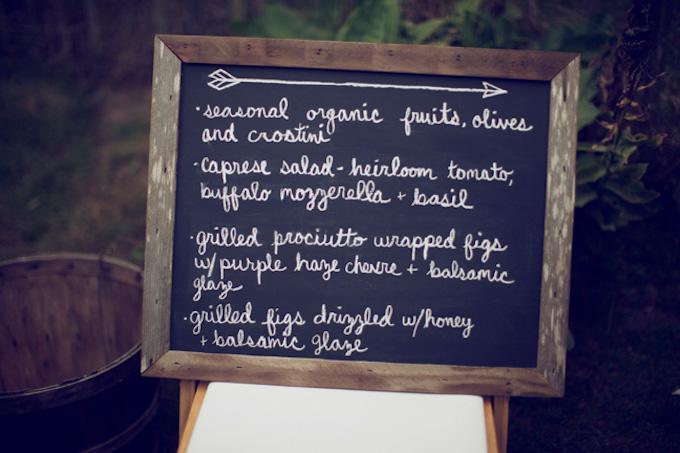 · seasonal organic fruits, olives
and crostini
· caprese salad - heirloom tomato,
buffalo mozzerella + basil
· grilled prociutto wrapped figs
w/ purple haze chevre + balsamic
glaze
· grilled figs drizzled w/ honey
+ balsamic glaze